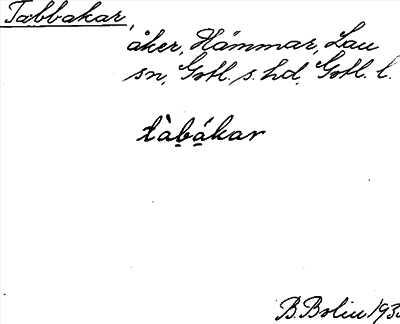 Tabbakar,
åker, Hämmar, Lau
sn, Gotl. s. hd, Gotl. l.
tàb̲á̲kar
B. Bolin